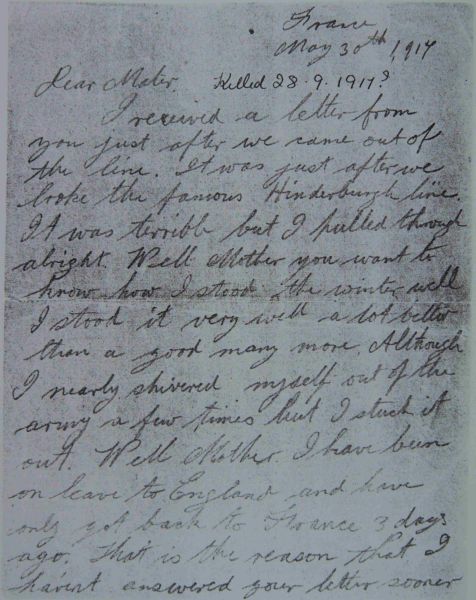 France
May 30th, 1917
Dear Mater. Killed 28.9.1917?
I received a letter from
you just after we came out of
the line. It was just after we
broke the famous Hinderburgh line.
It was terrible but I pulled through
alright. Well Mother you want to
know how I stood the winter well
I stood it very well a lot better
than a good many more. Although
I nearly shivered myself out of the
army a few times but I stuck it
out. Well Mother. I have been
on leave to England and have
only got back to France 3 days
ago. That is the reason that I
hav'nt answered your letter sooner